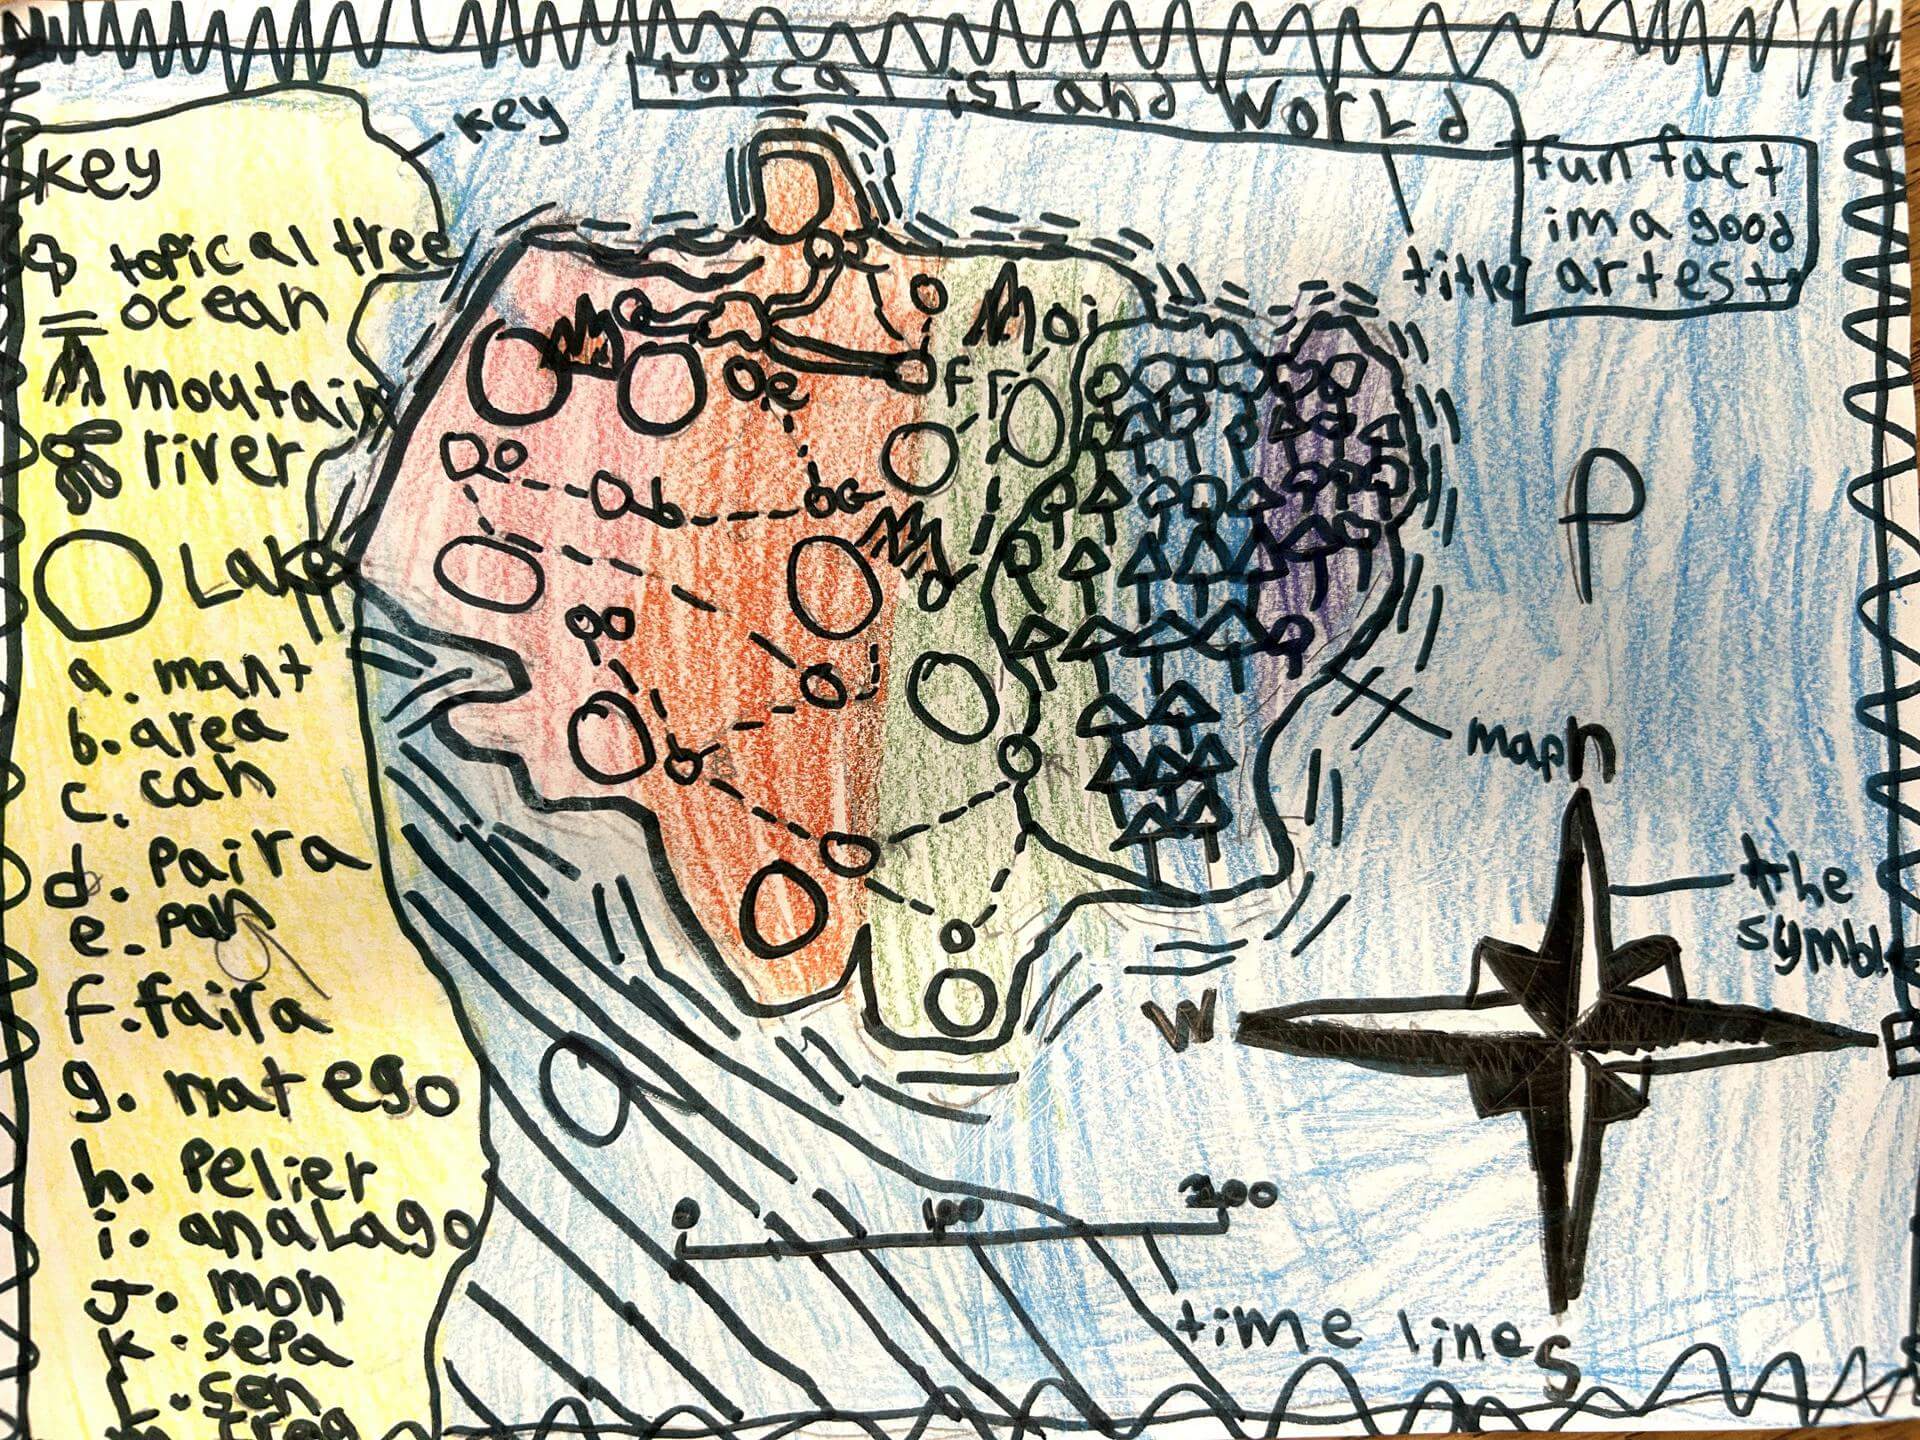 topcal island world
key
fun fact
im a good
artest
title
key
topical tree
ocean
moutain
river
Lake
a. mant
b. area
c. can
d. paira
e. pan
f. faira
g. mat ego
h. pelier
i. analago
J. mon
k. sepa
l. sen
e
b
F
i
P
map
n
the
symbl
W
0
100
200
time lines
S